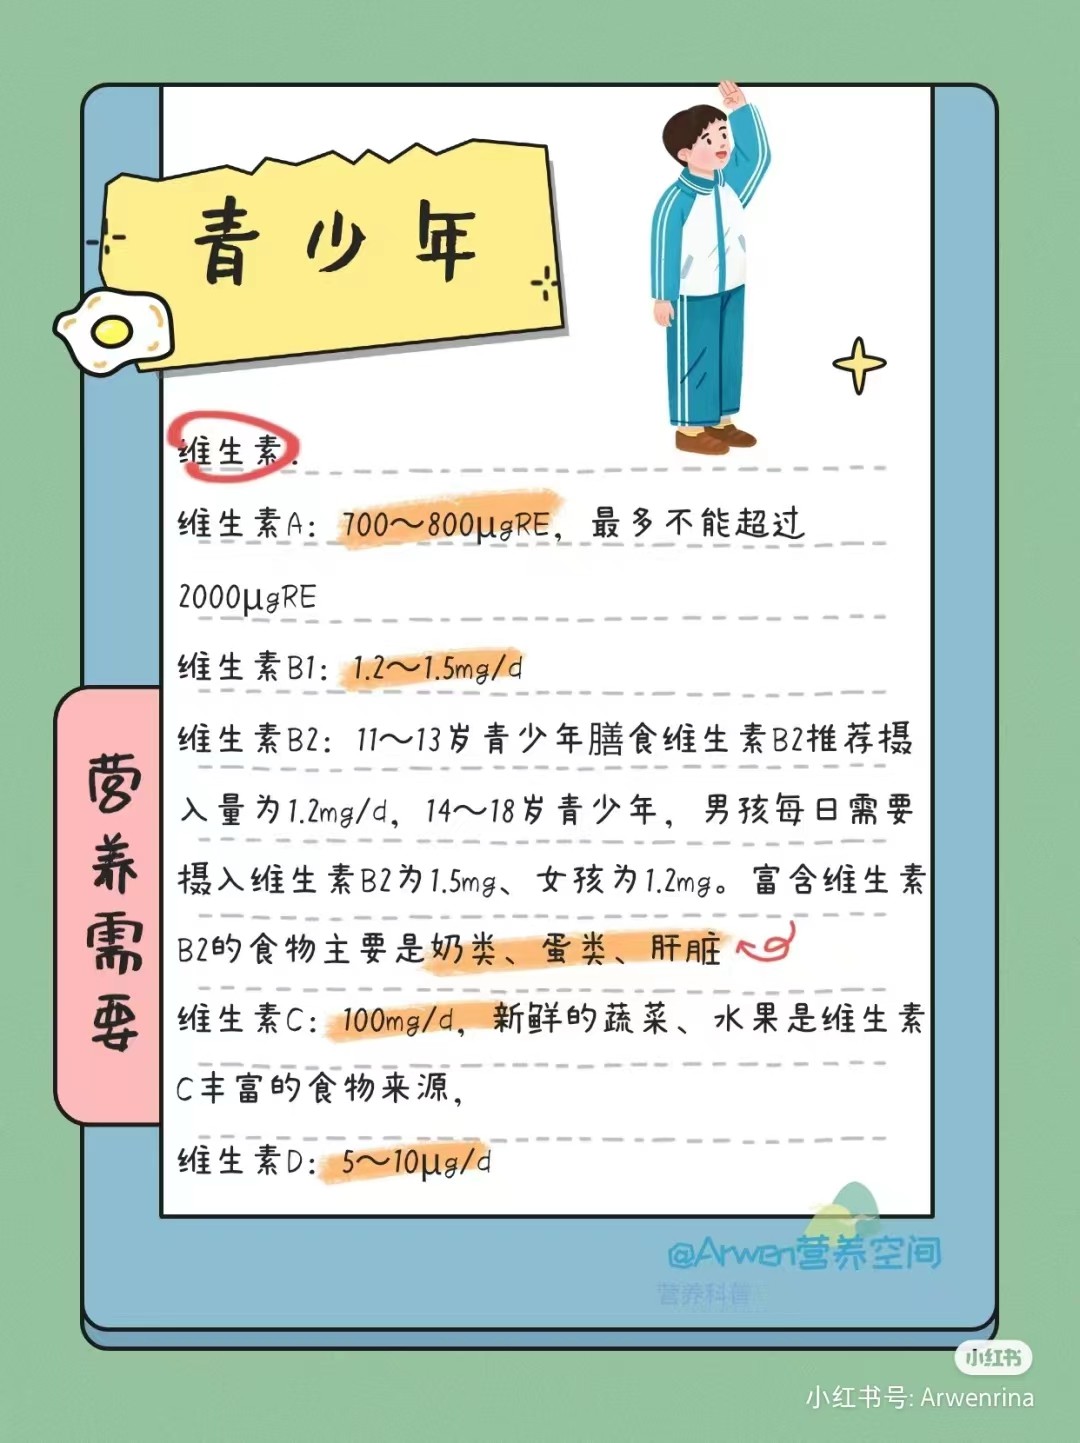 青少年
维生素:
维生素A: 700～800μgRE, 最多不能超过
2000μgRE
维生素B1: 1.2～1.5mg/d
维生素B2: 11～13岁青少年膳食维生素B2推荐摄
入量为1.2mg/d, 14～18岁青少年, 男孩每日需要
摄入维生素B2为1.5mg、女孩为1.2mg。富含维生素
B2的食物主要是奶类、蛋类、肝脏
维生素C: 100mg/d, 新鲜的蔬菜、水果是维生素
C丰富的食物来源,
维生素D: 5～10μg/d
营养需要
@Arwen营养空间
营养科普
小红书
小红书号: Arwenrina